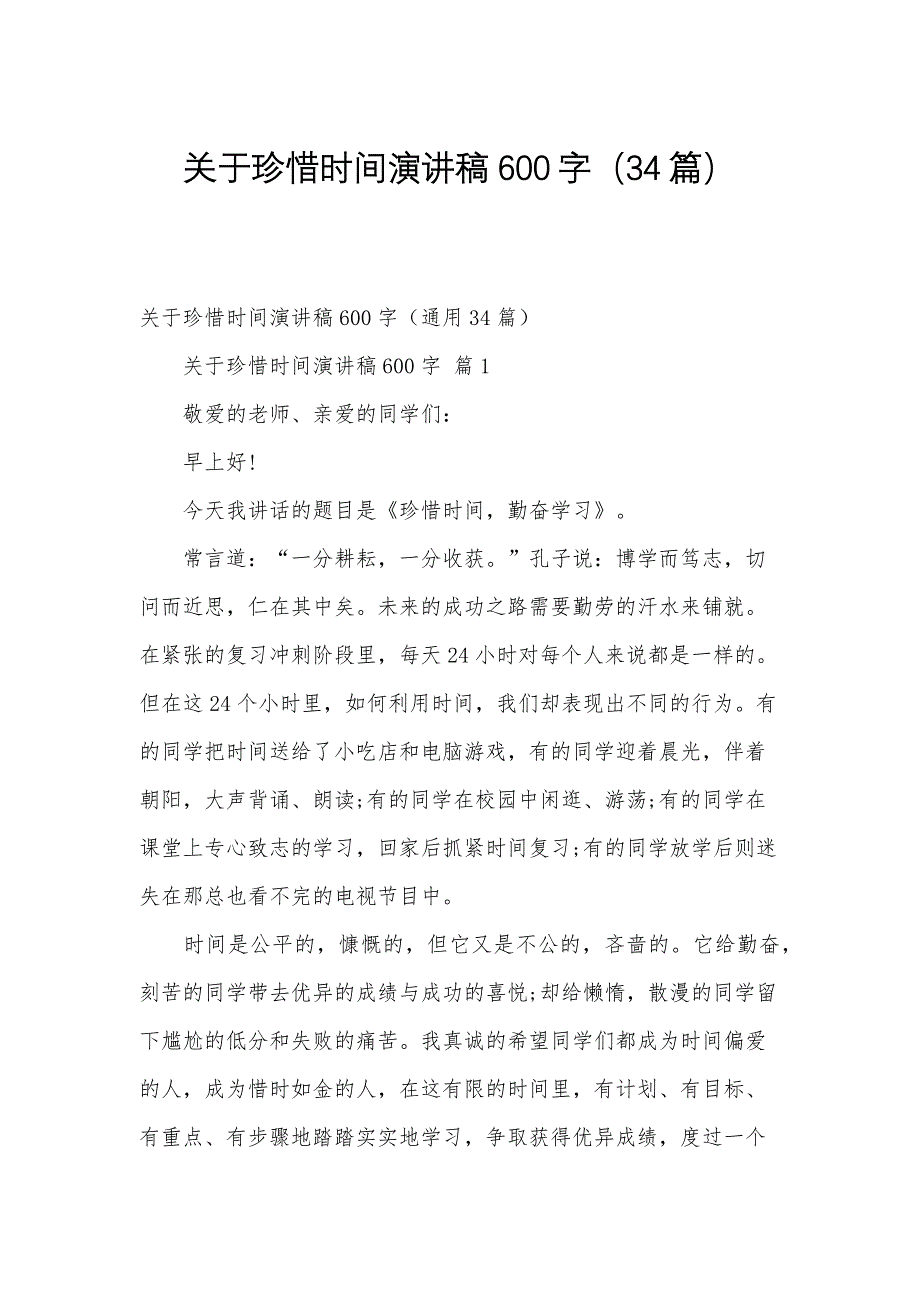 关于珍惜时间演讲稿 600 字（34 篇）
关于珍惜时间演讲稿 600 字（通用 34 篇）
关于珍惜时间演讲稿 600 字 篇 1
敬爱的老师、亲爱的同学们：
早上好!
今天我讲话的题目是《珍惜时间，勤奋学习》。
常言道：“一分耕耘，一分收获。”孔子说：博学而笃志，切
问而近思，仁在其中矣。未来的成功之路需要勤劳的汗水来铺就。
在紧张的复习冲刺阶段里，每天 24 小时对每个人来说都是一样的。
但在这 24 个小时里，如何利用时间，我们却表现出不同的行为。有
的同学把时间送给了小吃店和电脑游戏，有的同学迎着晨光，伴着
朝阳，大声背诵、朗读;有的同学在校园中闲逛、游荡;有的同学在
课堂上专心致志的学习，回家后抓紧时间复习;有的同学放学后则迷
失在那总也看不完的电视节目中。
时间是公平的，慷慨的，但它又是不公的，吝啬的。它给勤奋，
刻苦的同学带去优异的成绩与成功的喜悦;却给懒惰，散漫的同学留
下尴尬的低分和失败的痛苦。我真诚的希望同学们都成为时间偏爱
的人，成为惜时如金的人，在这有限的时间里，有计划、有目标、
有重点、有步骤地踏踏实实地学习，争取获得优异成绩，度过一个